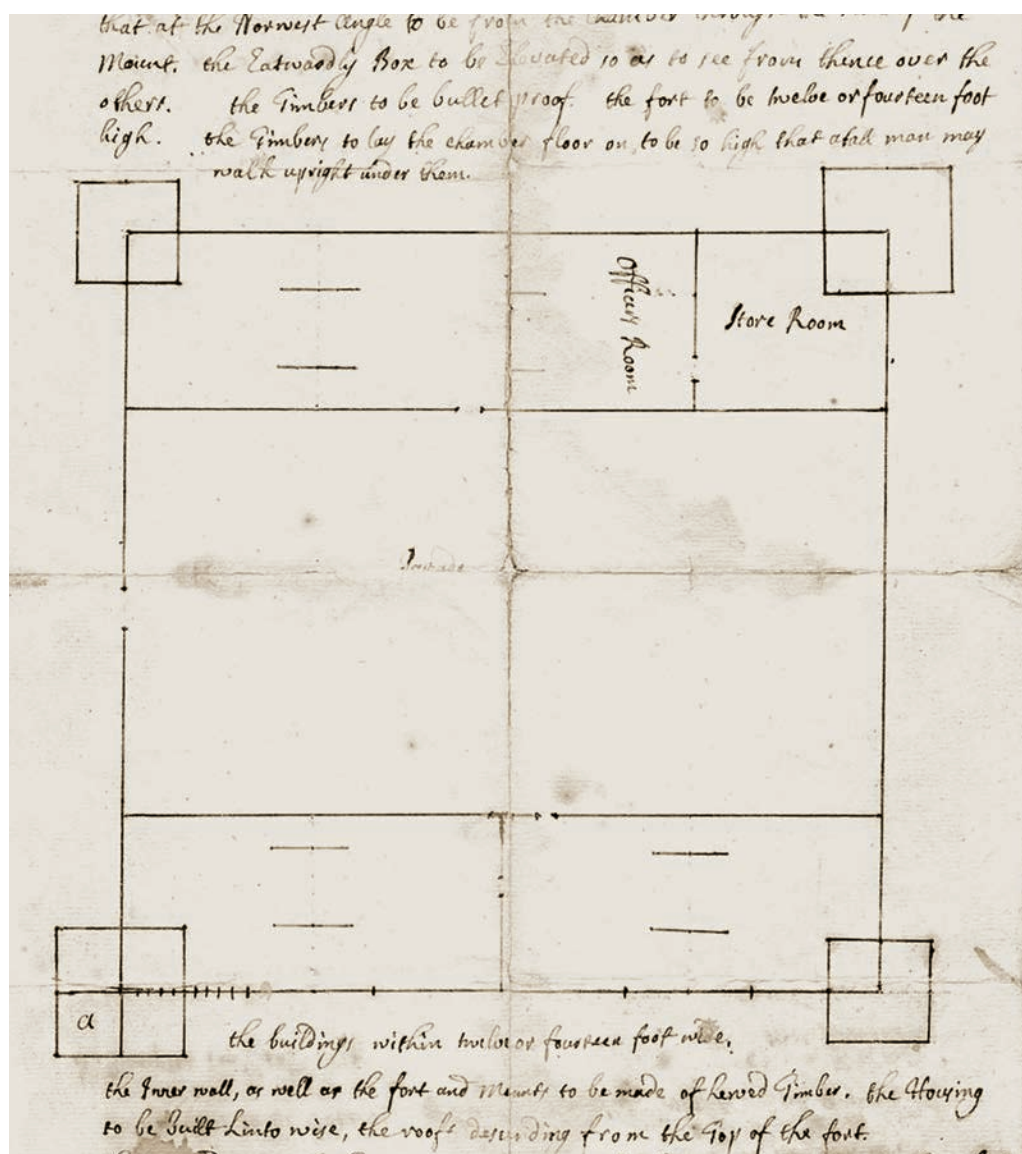 that at the Norwest Angle to be from the Chamber through the of the
Mount. the Eatwardly Box to be Elevated so as to see from thence over the
others. the Timbers to be bullet proof. the fort to be twelve or fourteen foot
high. the Timbers to lay the chamber floor on, to be so high that a tall man may
walk upright under them.
Officers Room
Store Room
Parade
a
the buildings within twelve or fourteen foot wide.
the Inner wall, as well as the fort and Mounts to be made of hewed Timber. the Housing
to be Built Linto wise, the roofs descending from the Top of the fort.